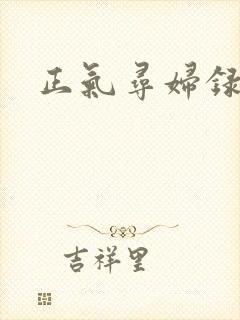 正氣尋婦録
吉祥里